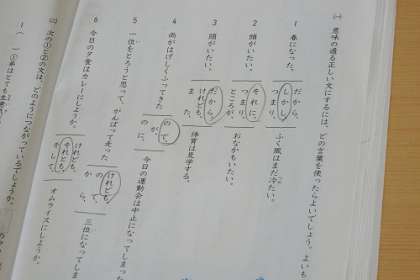 ㈠ 意味の通る正しい文にするには、どの言葉を使ったらよいでしょう。よいも
1 春になった、 だから、 しかし、 つまり、 ふく風はまだ冷たい。
2 頭がいたい。 それに、 つまり、 ところが、 おなかもいたい。
3 頭がいたい。 だから、 けれども、 また、 体育は見学する。
4 雨がはげしくふってきた ので、 が、 のに、 今日の運動会は中止になってしまった
5 一位をとろうと思って、がんばって走った けれども、 ので、 から、 三位になってしま
6 今日の夕食はカレーにしようか。 けれども、 それとも、 そして、 オムライスにしようか。
㈡ 次の①と②の文は、どのようにつながっているでしょうか。